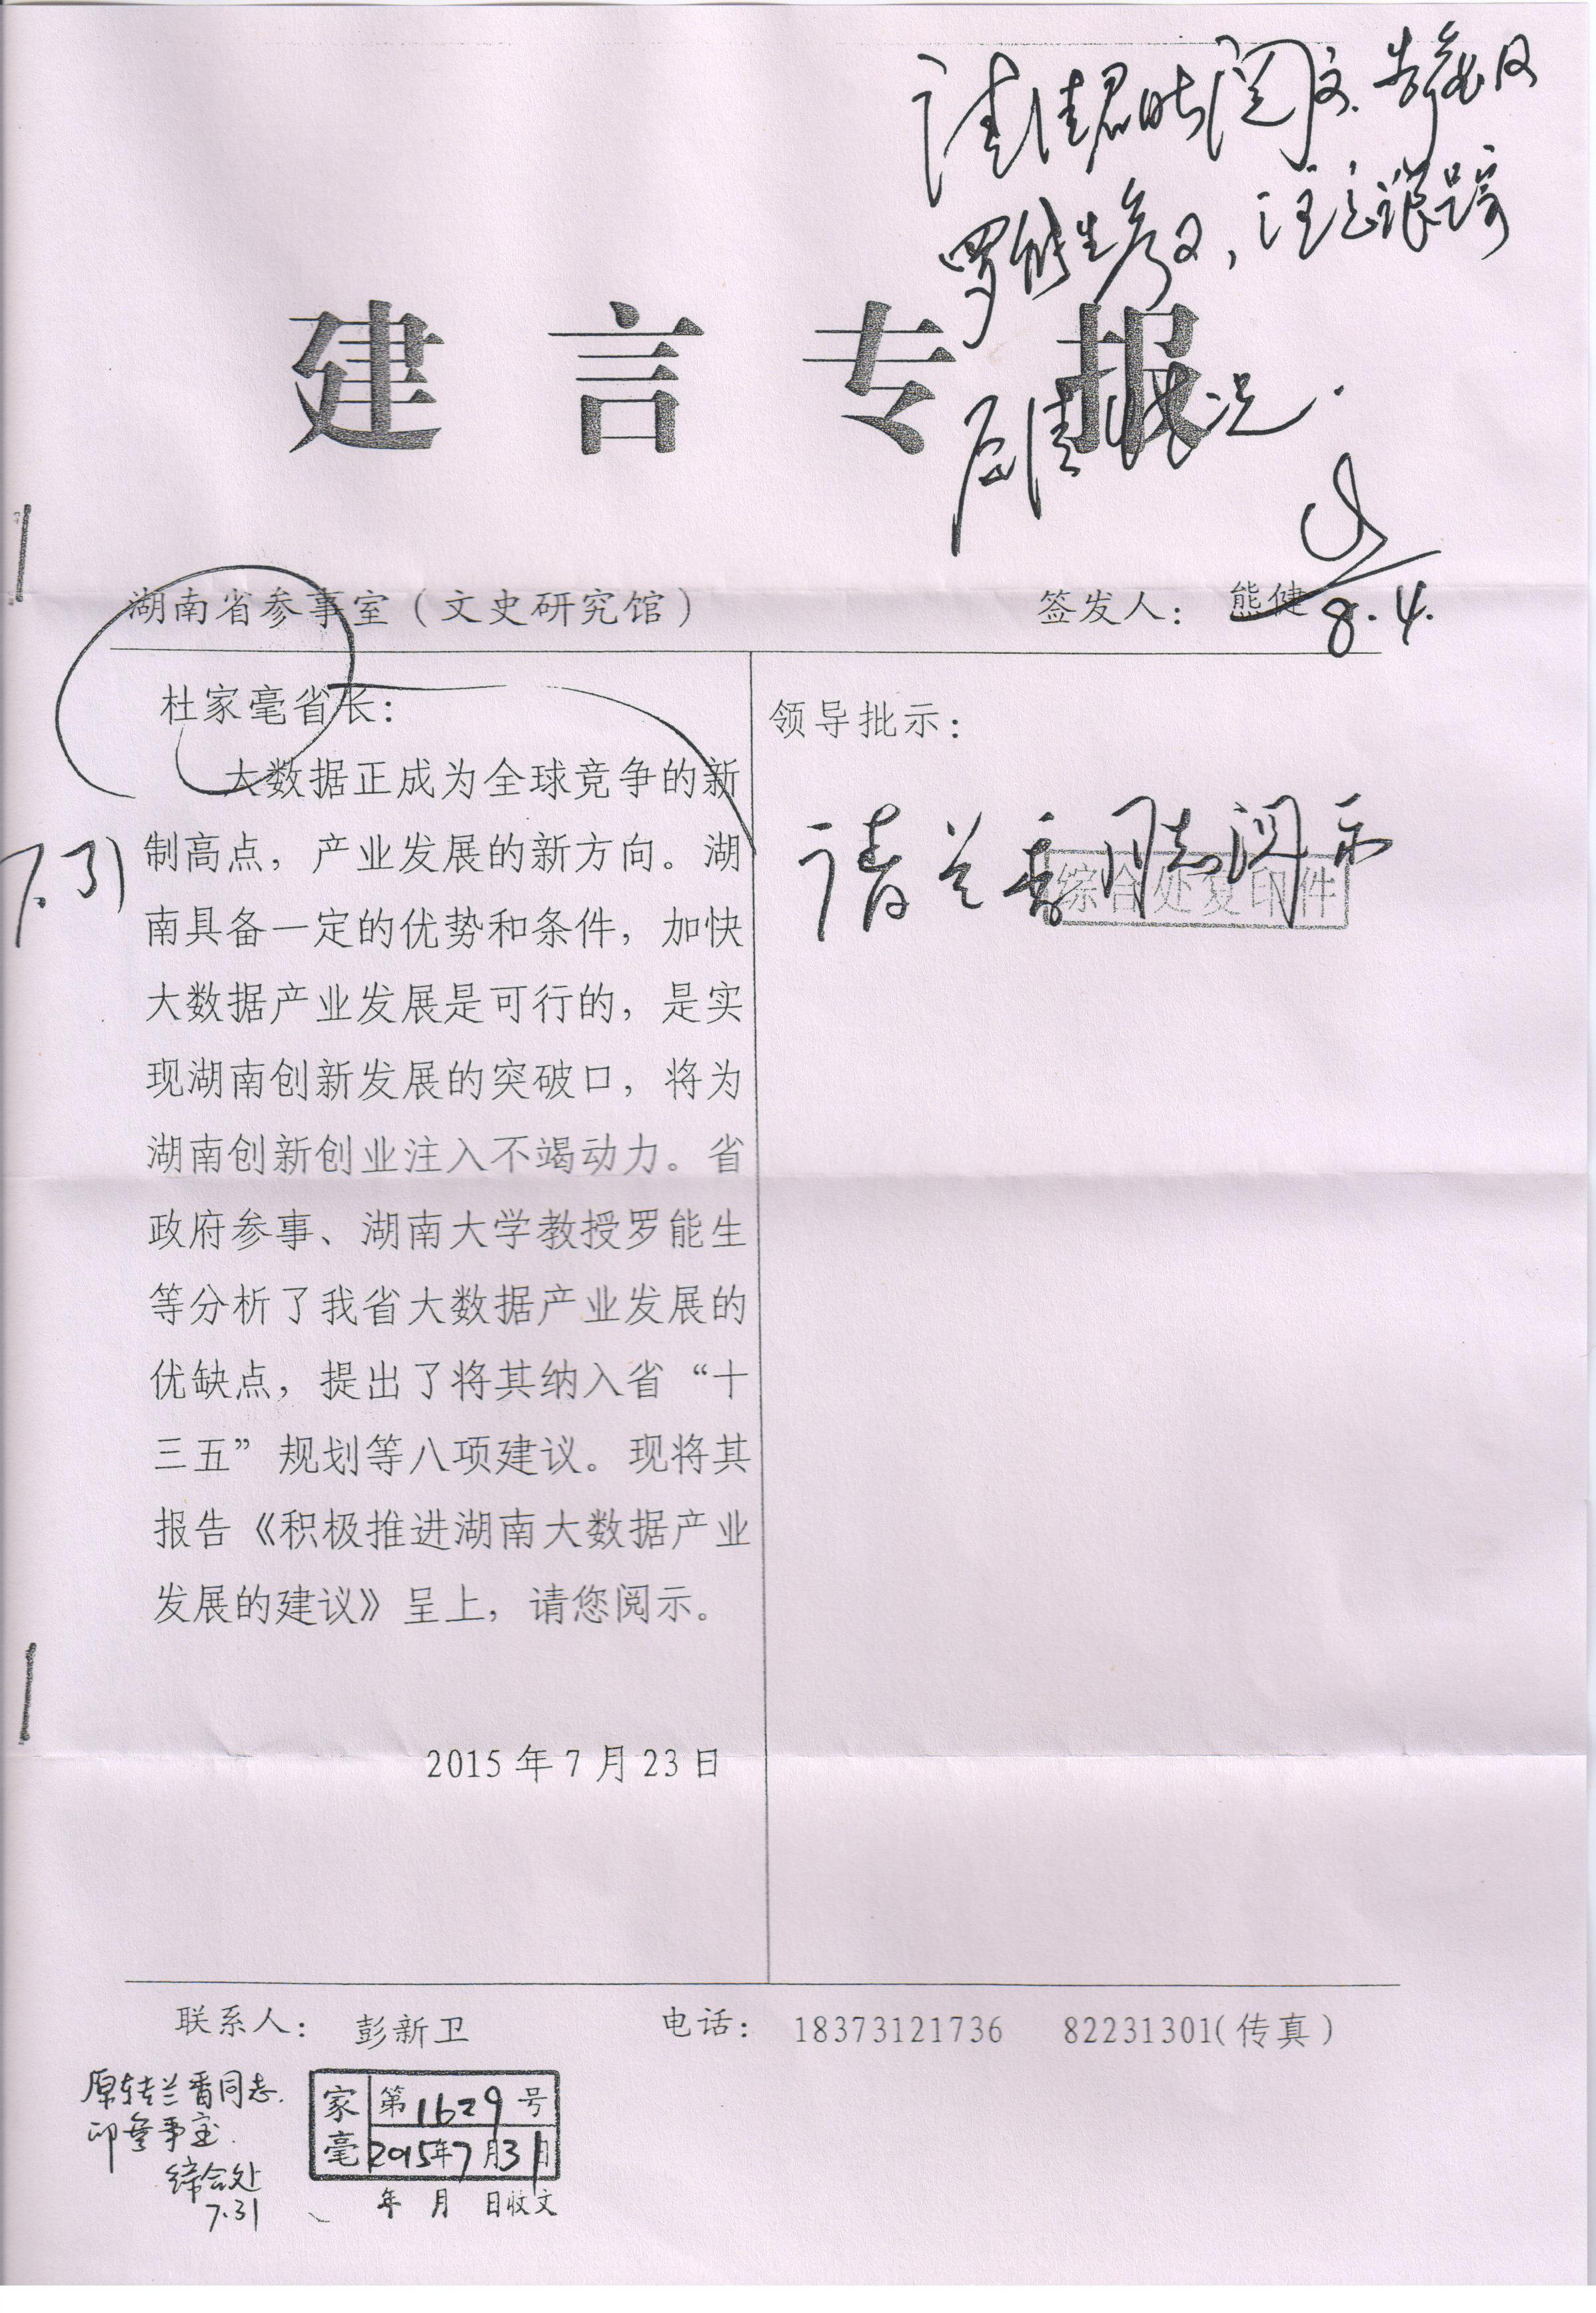 请佳君时阅文
罗能生参阅,注意跟踪
后续情况.
8.4.
建言专报
湖南省参事室(文史研究馆)
签发人: 熊健
杜家毫省长:
大数据正成为全球竞争的新
制高点,产业发展的新方向。湖
南具备一定的优势和条件,加快
大数据产业发展是可行的,是实
现湖南创新发展的突破口,将为
湖南创新创业注入不竭动力。省
政府参事、湖南大学教授罗能生
等分析了我省大数据产业发展的
优缺点,提出了将其纳入省“十
三五”规划等八项建议。现将其
报告《积极推进湖南大数据产业
发展的建议》呈上,请您阅示。
2015年7月23日
7.31
领导批示:
请兰香同志阅示
综合处复印件
联系人: 彭新卫 电话: 18373121736 82231301(传真)
原转兰香同志.
印参事室.
综合处
7.31
家毫 第1629号
2015年7月31日
年 月 日收文